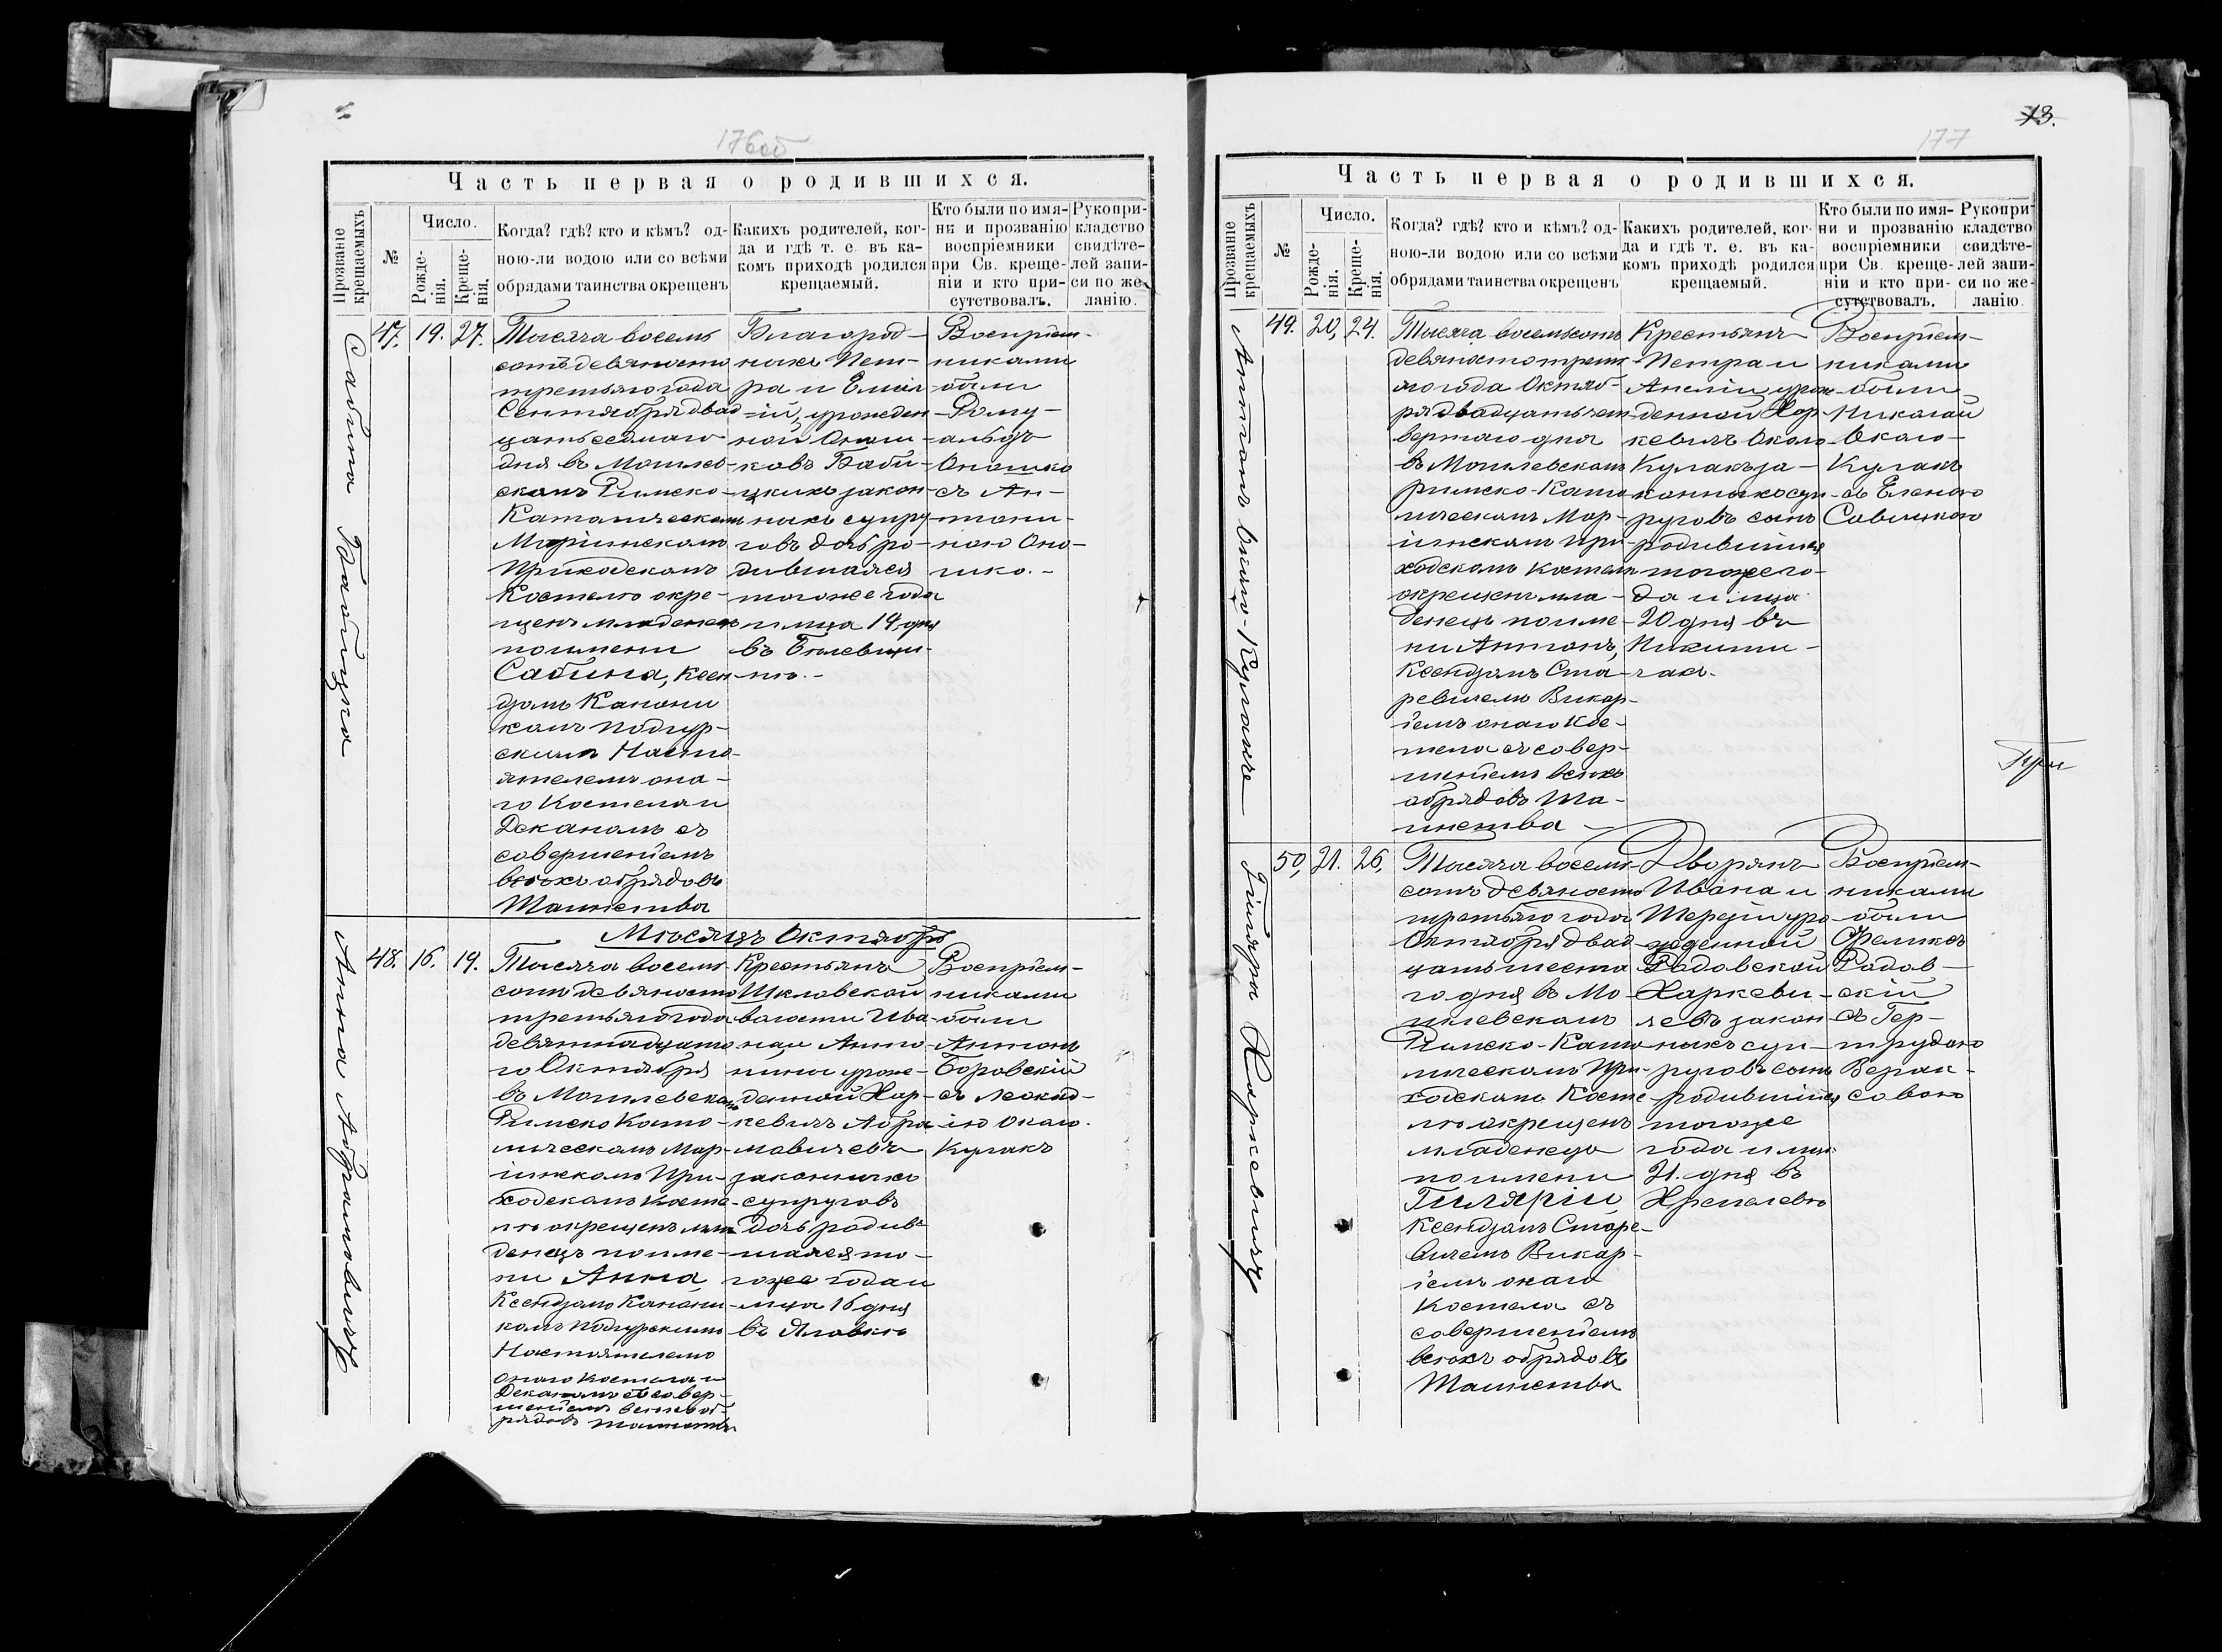 176об
Часть первая о родившихся.
Прозваніе крещаемыхъ
№
Число.
Рожде-
нія.
Креще-
нія.
Когда? гдѣ? кто и кѣмъ? од-
ною-ли водою или со всѣми
обрядами таинства окрещенъ
Какихъ родителей, ког-
да и гдѣ т. е. въ ка-
комъ приходѣ родился
крещаемый.
Кто были по имя-
ни и прозванію
воспріемники
при Св. креще-
ніи и кто при-
сутствовалъ.
Рукопри-
кладство
свидѣте-
лей запи-
си по же-
ланію.
Сабина Бабицка
47. 19. 27.
Тысяча восемь
сотъ девяносто
третьяго года
Сентября двад
цать седмаго
дня въ Могилев-
скомъ Римско-
Католическомъ
Маріинскомъ
Приходскомъ
Костелѣ окре-
щенъ младенец
по имени
Сабина, Ксен
дзомъ Канони
комъ Подгур-
скимъ Насто-
ятелемъ она-
го Костела и
Деканомъ съ
совершеніемъ
всѣхъ обрядовъ
Таинства
Благород-
ныхъ Пет-
ра и Емил
-ій, урожден
ной Онош-
ковъ Баби-
цкихъ закон-
ныхъ супру
говъ дочь ро-
дившаяся
тогоже года
и мца 19 дня
Воспріем-
никами
были
Рому-
альдъ
Оношко
съ Ан-
тони-
ною Оно-
шко.-
Мѣсяцъ Октябрь
Анна Абрамовичъ
48. 16. 19.
Тысяча восемь
сотъ девяносто
третьяго года
девятнадцата
го Октября
въ Могилевском
Римско Като-
лическомъ Мар-
іинскомъ При-
ходскомъ Косте-
лѣ окрещенъ мла
денецъ по име-
ни Анна
Ксендзомъ Канони-
комъ Подгурскимъ
Настоятелемъ
онаго Костела и
Деканомъ съ совер-
шеніемъ всѣхъ об-
рядовъ таинства
Крестьянъ
Шкловской
волости Ива
на и Анто-
нины урож-
денной Хар-
кевичъ Абра
мовичевъ
законныхъ
супруговъ
Дочь родив
шаяся то-
гоже года и
мца 16 дня
Воспріем-
никами
были
Антонъ
Боровскій
съ Леокад-
ію Окало-
Кулакъ
13.
177
Часть первая о родившихся.
Прозваніе крещаемыхъ
№
Число.
Рожде-
нія.
Креще-
нія.
Когда? гдѣ? кто и кѣмъ? од-
ною-ли водою или со всѣми
обрядами таинства окрещенъ
Какихъ родителей, ког-
да и гдѣ т. е. въ ка-
комъ приходѣ родился
крещаемый.
Кто были по имя-
ни и прозванію
воспріемники
при Св. креще-
ніи и кто при-
сутствовалъ.
Рукопри-
кладство
свидѣте-
лей запи-
си по же-
ланію.
Антонъ Окало-Кулакъ
49. 20, 24.
Тысяча восемьсотъ
девяносто треть
яго года Октяб-
ря двадцать чет-
вертаго дня
въ Могилевскомъ
римско-Като
лическомъ Мар-
іинскомъ при-
ходскомъ Костелѣ
окрещенъ мла-
денецъ по име-
ни Антонъ,
Ксендзомъ Ста-
ревичемъ Викар-
іемъ онаго Кос-
тела съ совер-
шеніемъ всѣхъ
обрядовъ Та-
инства
Крестьянъ
Петра и
Анеліи урож
денной Хар-
кевичъ Окало
Кулакъ за-
конныхъ суп-
руговъ сынъ
родившійся
тогоже го-
да и мца
20 дня въ
Воспріем-
никами
были
Николай
Окало-
Кулакъ
съ Еленою
Савицкою
Гиляріи Харкевичъ
50, 21. 26,
Тысяча восемь
сотъ девяносто
третьяго года
Октября двад-
цать шеста
го дня въ Мо-
гилевскомъ
Римско-Като
лическомъ При-
ходскомъ Косте
лѣ окрещенъ
младенецъ
по имени
Гиляріи
Ксендзомъ Старе-
вичемъ Викар-
іемъ онаго
Костела съ
совершеніемъ
всѣхъ обрядовъ
Таинства
Дворянъ
Ивана и
Терезіи уро
жденной
Радовской
Харкеви-
чевъ закон
ныхъ суп-
руговъ сынъ
родившійся
тогоже
года и мца
21. дня въ
Воспріем-
никами
были
Феликсъ
Радов-
скій
съ Гер-
трудою